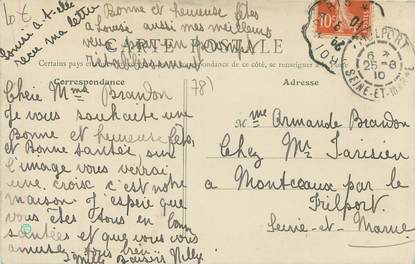 10€
Bonne et heureuse fête
a Louise aussi mes meilleurs
vœux et un prompt
rétablissement
Louis a-t-elle
reçu ma lettre
CARTE POSTALE
Correspondance
de ce côté, se renseigner
Adresse
(78)
Chère Mme Brandon
Je vous souhaite une
Bonne et heureuse fête,
et Bonne santée, sur
l'image vous verrai
une croix c'est notre
maison J'espère que
vous êtes tous en bonne
santées et que vous vous
amusez bien
Mille Baisers Nelly
Mme Armande Brandon
Chez Mr Tarisien
a Montceaux par le
Trilport
Seine-et-Marne
10
TRILPORT
25-8
10
SEINE-ET-MARNE